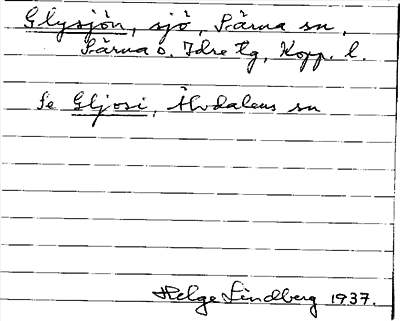 Glysjön, sjö, Särna sn,
Särna o. Idre tg, Kopp. l.
Se Gljosi, Älvdalens sn
Helge Lindberg 1937.